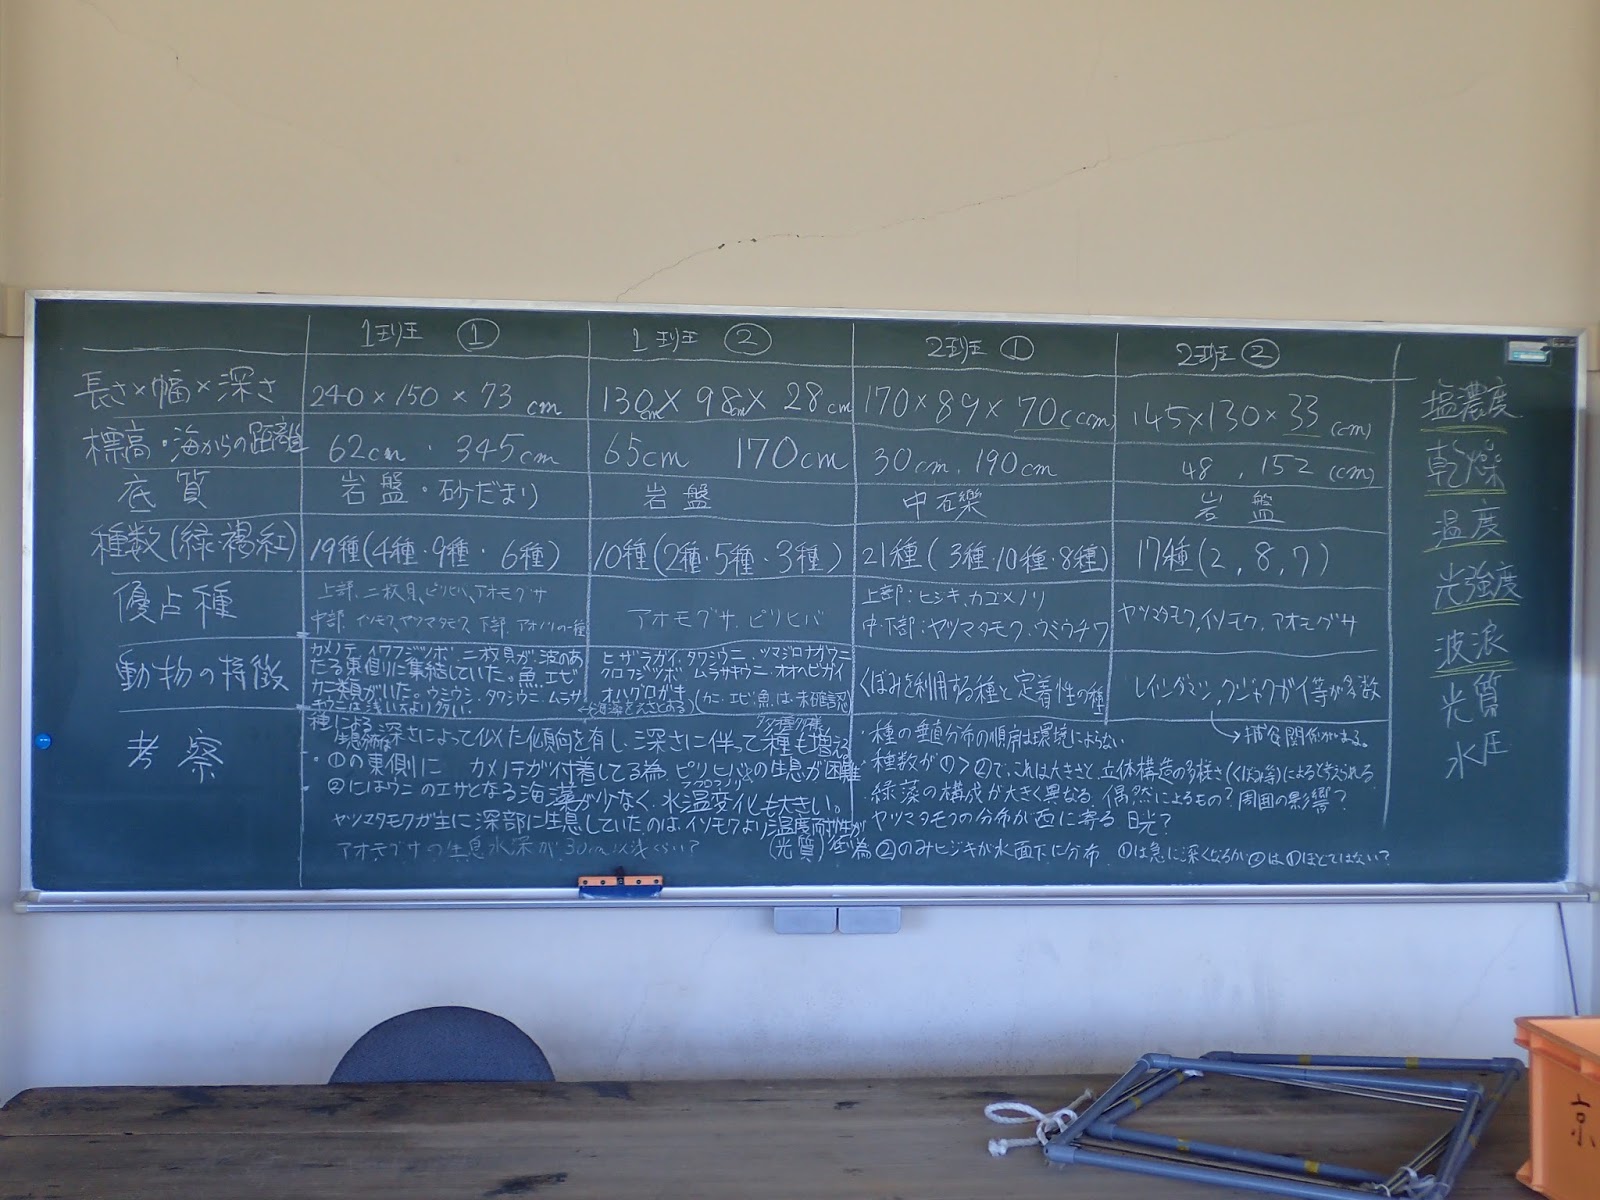 1班 ①
1班 ②
2班 ①
2班 ②
長さ×幅×深さ
240×150×73 cm
130cm×98cm×28cm
170×89×70(cm)
145×130×33 (cm)
標高・海からの距離
62cm・345cm
65cm 170cm
30cm, 190cm
48, 152 (cm)
底質
岩盤・砂だまり
岩盤
中石礫
岩盤
種数(緑・褐・紅)
19種(4種・9種・6種)
10種(2種・5種・3種)
21種(3種・10種・8種)
17種(2, 8, 7)
優占種
上部、二枚貝、ピリヒバ、アオモグサ
中部、イソモク、ヤツマタモク、下部、アオノリの一種
アオモグサ、ピリヒバ
上部:ヒジキ、カゴメノリ
中・下部:ヤツマタモク、ウミウチワ
ヤツマタモク、イソモク、アオモグサ
動物の特徴
カメノテ、イワフジツボ、二枚貝が、波のあ
たる東側に集結していた。魚、エビ
カニ類がいた。ウミウシ、タワシウニ、ムラサ
キウニは浅い方より多い
ヒザラガイ、タワシウニ、ツマジロナガウニ
クロフジツボ ムラサキウニ、オオヘビガイ
オハグロガキ
(海藻をえさとする)(カニ・エビ・魚は未確認)
くぼみを利用する種と定着性の種
レイシダマシ、クジャクガイ等が多数
→捕食関係がある。
考察
種による
生息分布は深さによって似た傾向を有し、深さに伴って種も増える
・①の東側に カメノテが付着してる為、ピリヒバの生息が困難
②にはウニのエサとなる海藻が少なく、水温変化も大きい。
ヤツマタモクが主に深部に生息していたのは、イソモクより温度耐性が
(光質) 低い為
アオモグサの生息水深が30cm以浅くらい?
・種の垂直分布の順序は環境によらない
・種数が①>②で、これは大きさと、立体構造の多様さ(くぼみ等)によると考えられる
・緑藻の構成が大きく異なる 偶然によるもの?周囲の影響?
ヤツマタモクの分布が西に寄る 日光?
②のみヒジキが水面下に分布 ①は急に深くなるが②は①ほどではない?
塩濃度
乾燥
温度
光強度
波浪
光質
水圧
京